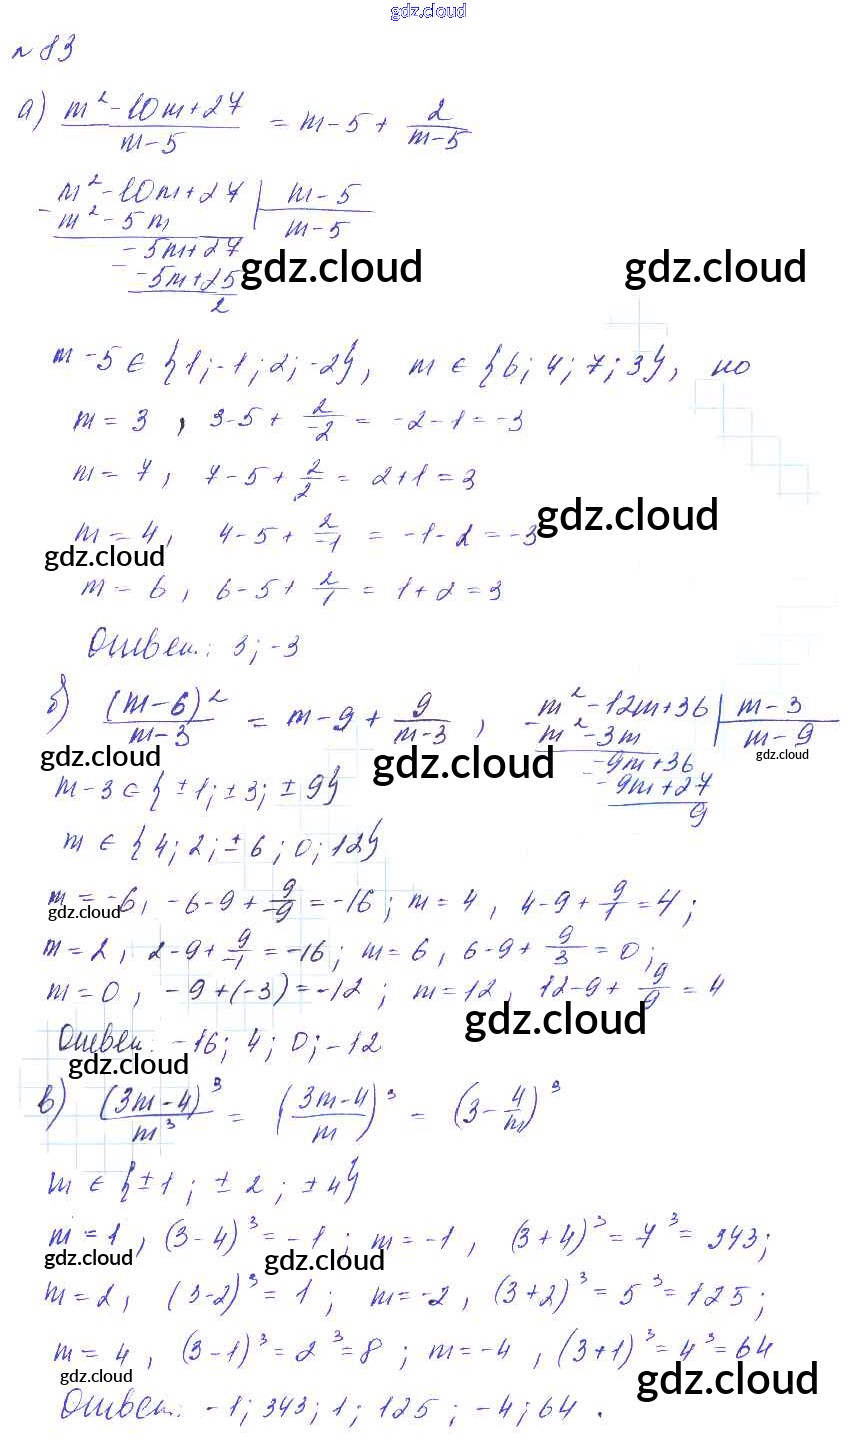 gdz.cloud
№ 83
а) (m² - 10m + 27)/(m - 5) = m - 5 + 2/(m - 5)
m² - 10m + 27 | m - 5
- m² - 5m | m - 5
- 5m + 27
- - 5m + 25
2
gdz.cloud gdz.cloud
m - 5 ∈ {1; -1; 2; -2}, m ∈ {6; 4; 7; 3}, но
m = 3, 3 - 5 + 2/-2 = -2 - 1 = -3
m = 7, 7 - 5 + 2/2 = 2 + 1 = 3
m = 4, 4 - 5 + 2/-1 = -1 - 2 = -3
gdz.cloud gdz.cloud
m = 6, 6 - 5 + 2/1 = 1 + 2 = 3
Ответ: 3; -3
б) (m - 6)²/(m - 3) = m - 9 + 9/(m - 3), m² - 12m + 36 | m - 3
- m² - 3m | m - 9
- 9m + 36
- - 9m + 27
9
gdz.cloud gdz.cloud gdz.cloud
m - 3 ∈ {±1; ±3; ±9}
m ∈ {4; 2; ±6; 0; 12}
m = -6, -6 - 9 + 9/-9 = -16; m = 4, 4 - 9 + 9/1 = 4;
gdz.cloud
m = 2, 2 - 9 + 9/-1 = -16; m = 6, 6 - 9 + 9/3 = 0;
m = 0, -9 + (-3) = -12; m = 12, 12 - 9 + 9/9 = 4
gdz.cloud
Ответ: -16; 4; 0; -12
gdz.cloud
в) (3m - 4)³/m³ = ((3m - 4)/m)³ = (3 - 4/m)³
m ∈ {±1; ±2; ±4}
m = 1, (3 - 4)³ = -1; m = -1, (3 + 4)³ = 7³ = 343;
gdz.cloud gdz.cloud
m = 2, (3 - 2)³ = 1; m = -2, (3 + 2)³ = 5³ = 125;
m = 4, (3 - 1)³ = 2³ = 8; m = -4, (3 + 1)³ = 4³ = 64
gdz.cloud gdz.cloud
Ответ: -1; 343; 1; 125; -4; 64.